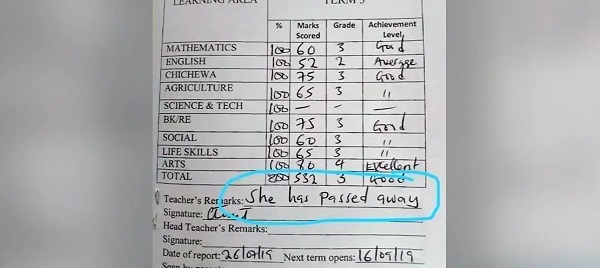 LEARNING AREA TERM 3
% Marks Scored Grade Achievement Level
MATHEMATICS 100 60 3 Good
ENGLISH 100 52 2 Average
CHICHEWA 100 75 3 Good
AGRICULTURE 100 65 3 "
SCIENCE & TECH 100 — — —
BK/RE 100 75 3 Good
SOCIAL 100 60 3 "
LIFE SKILLS 100 65 3 "
ARTS 100 80 4 Excellent
TOTAL 800 532 3 Good
Teacher's Remarks: She has passed away
Signature:
Head Teacher's Remarks:
Signature:
Date of report: 26/07/19 Next term opens: 16/09/19